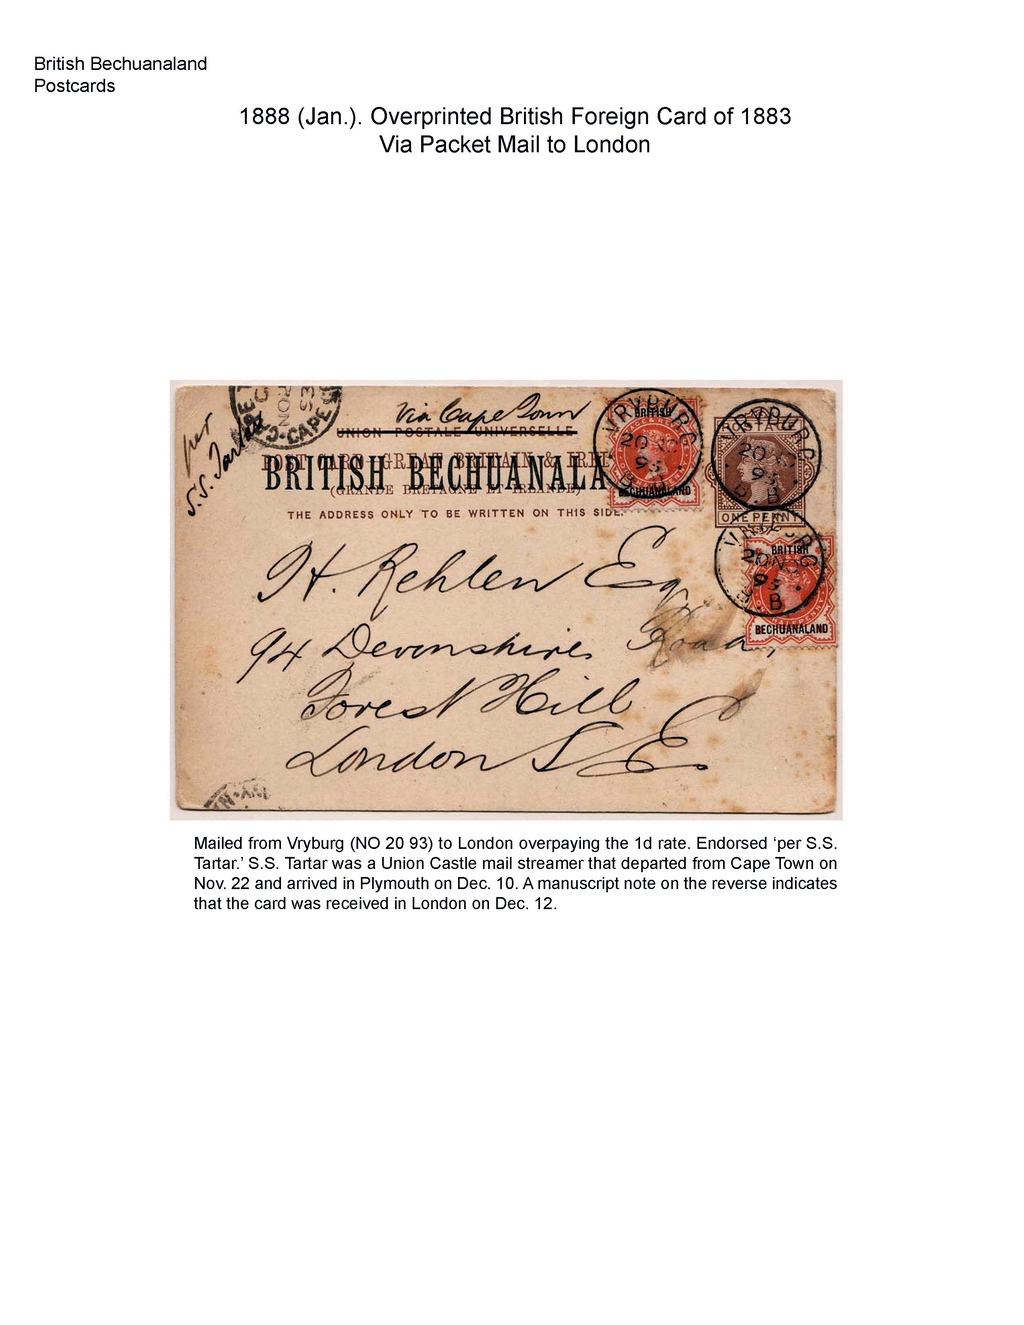 British Bechuanaland
Postcards
1888 (Jan.). Overprinted British Foreign Card of 1883
Via Packet Mail to London
per
S.S. Tartar
CAPE
Via Cape Town
UNION POSTALE UNIVERSELLE
POST CARD GREAT BRITAIN & IREL
BRITISH BECHUANALA
(GRANDE BRETAGNE ET IRLANDE)
THE ADDRESS ONLY TO BE WRITTEN ON THIS SIDE.
VRYBURG
20 NO
93
B
BRITISH
BECHUANALAND
VRYBURG
20
93
B
POSTAGE
ONE PENNY
VRYBURG
20 NO
93
B
BRITISH
BECHUANALAND
H. Rehlen Esq
94 Devonshire Road,
Forest Hill
London S E
Mailed from Vryburg (NO 20 93) to London overpaying the 1d rate. Endorsed ‘per S.S.
Tartar.’ S.S. Tartar was a Union Castle mail streamer that departed from Cape Town on
Nov. 22 and arrived in Plymouth on Dec. 10. A manuscript note on the reverse indicates
that the card was received in London on Dec. 12.